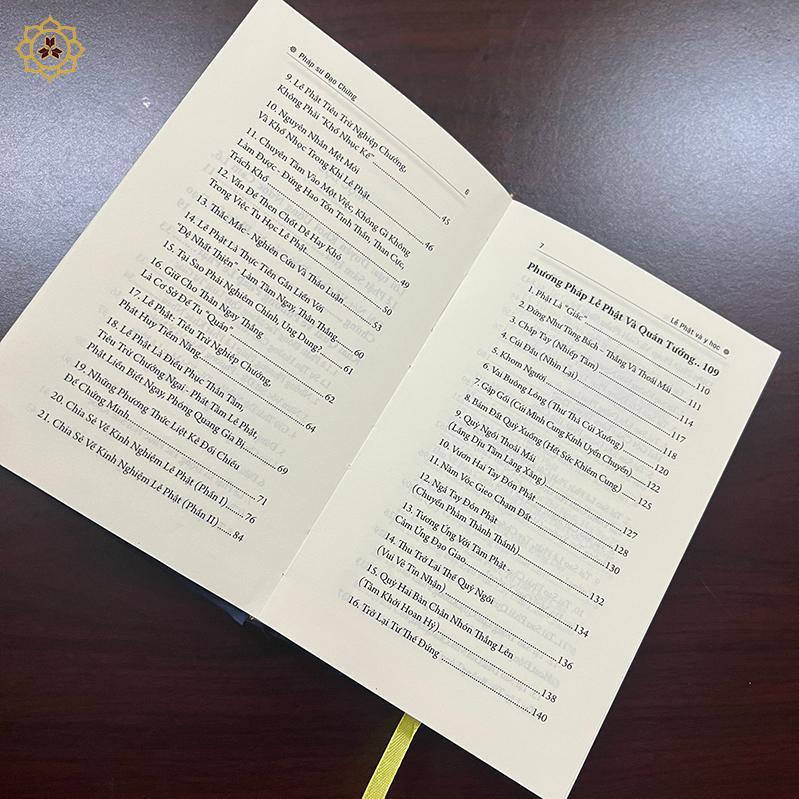 Pháp sư Đạo Chứng
6
9. Lễ Phật Tiêu Trừ Nghiệp Chướng,
Không Phải "Khổ Nhục Kế" ..... 45
10. Nguyên Nhân Mệt Mỏi
Và Khổ Nhọc Trong Khi Lễ Phật ..... 46
11. Chuyên Tâm Vào Một Việc, Không Gì Không
Làm Được - Đừng Hao Tổn Tinh Thần, Than Cực,
Trách Khổ ..... 49
12. Vấn Đề Then Chốt Dễ Hay Khó
Trong Việc Tu Học Lễ Phật ..... 50
13. Thắc Mắc - Nghiên Cứu Và Thảo Luận ..... 53
14. Lễ Phật Là Thực Tiễn Gắn Liền Với
"Đệ Nhất Thiện" - Làm Tâm Ngay Thân Thẳng ..... 60
15. Tại Sao Phải Nghiêm Chỉnh, Ung Dung? ..... 61
16. Giữ Cho Thân Ngay Thẳng
Là Cơ Sở Để Tu "Quán" ..... 62
17. Lễ Phật: Tiêu Trừ Nghiệp Chướng,
Phát Huy Tiềm Năng ..... 64
18. Lễ Phật Là Điều Phục Thân Tâm,
Tiêu Trừ Chướng Ngại - Phát Tâm Lễ Phật,
Phật Liền Biết Ngay, Phóng Quang Gia Bị ..... 69
19. Những Phương Thức Liệt Kê Đối Chiếu
Để Chứng Minh ..... 71
20. Chia Sẻ Về Kinh Nghiệm Lễ Phật (Phần I) ..... 76
21. Chia Sẻ Về Kinh Nghiệm Lễ Phật (Phần II) ..... 84
7
Lễ Phật và y học
Phương Pháp Lễ Phật Và Quán Tưởng.. 109
1. Phật Là "Giác" ..... 110
2. Đứng Như Tùng Bách - Thẳng Và Thoải Mái ..... 111
3. Chắp Tay (Nhiếp Tâm) ..... 114
4. Cúi Đầu (Nhìn Lại) ..... 117
5. Khom Người ..... 118
6. Vai Buông Lỏng (Thư Thả Cúi Xuống) ..... 120
7. Gập Gối (Cúi Mình Cung Kính Uyển Chuyển) ..... 122
8. Bấm Đất Quỳ Xuống (Hết Sức Khiêm Cung) ..... 125
9. Quỳ Ngồi Thoải Mái
(Lắng Dịu Tâm Lăng Xăng) ..... 127
10. Vươn Hai Tay Đón Phật ..... 128
11. Năm Vóc Gieo Chạm Đất ..... 130
12. Ngả Tay Đón Phật
(Chuyển Phàm Thành Thánh) ..... 132
13. Tương Ứng Với Tâm Phật -
Cảm Ứng Đạo Giao ..... 134
14. Thu Trở Lại Thế Quỳ Ngồi
(Vui Vẻ Tin Nhận) ..... 136
15. Quỳ Hai Bàn Chân Nhón Thẳng Lên
(Tâm Khởi Hoan Hỷ) ..... 138
16. Trở Lại Tư Thế Đứng ..... 140